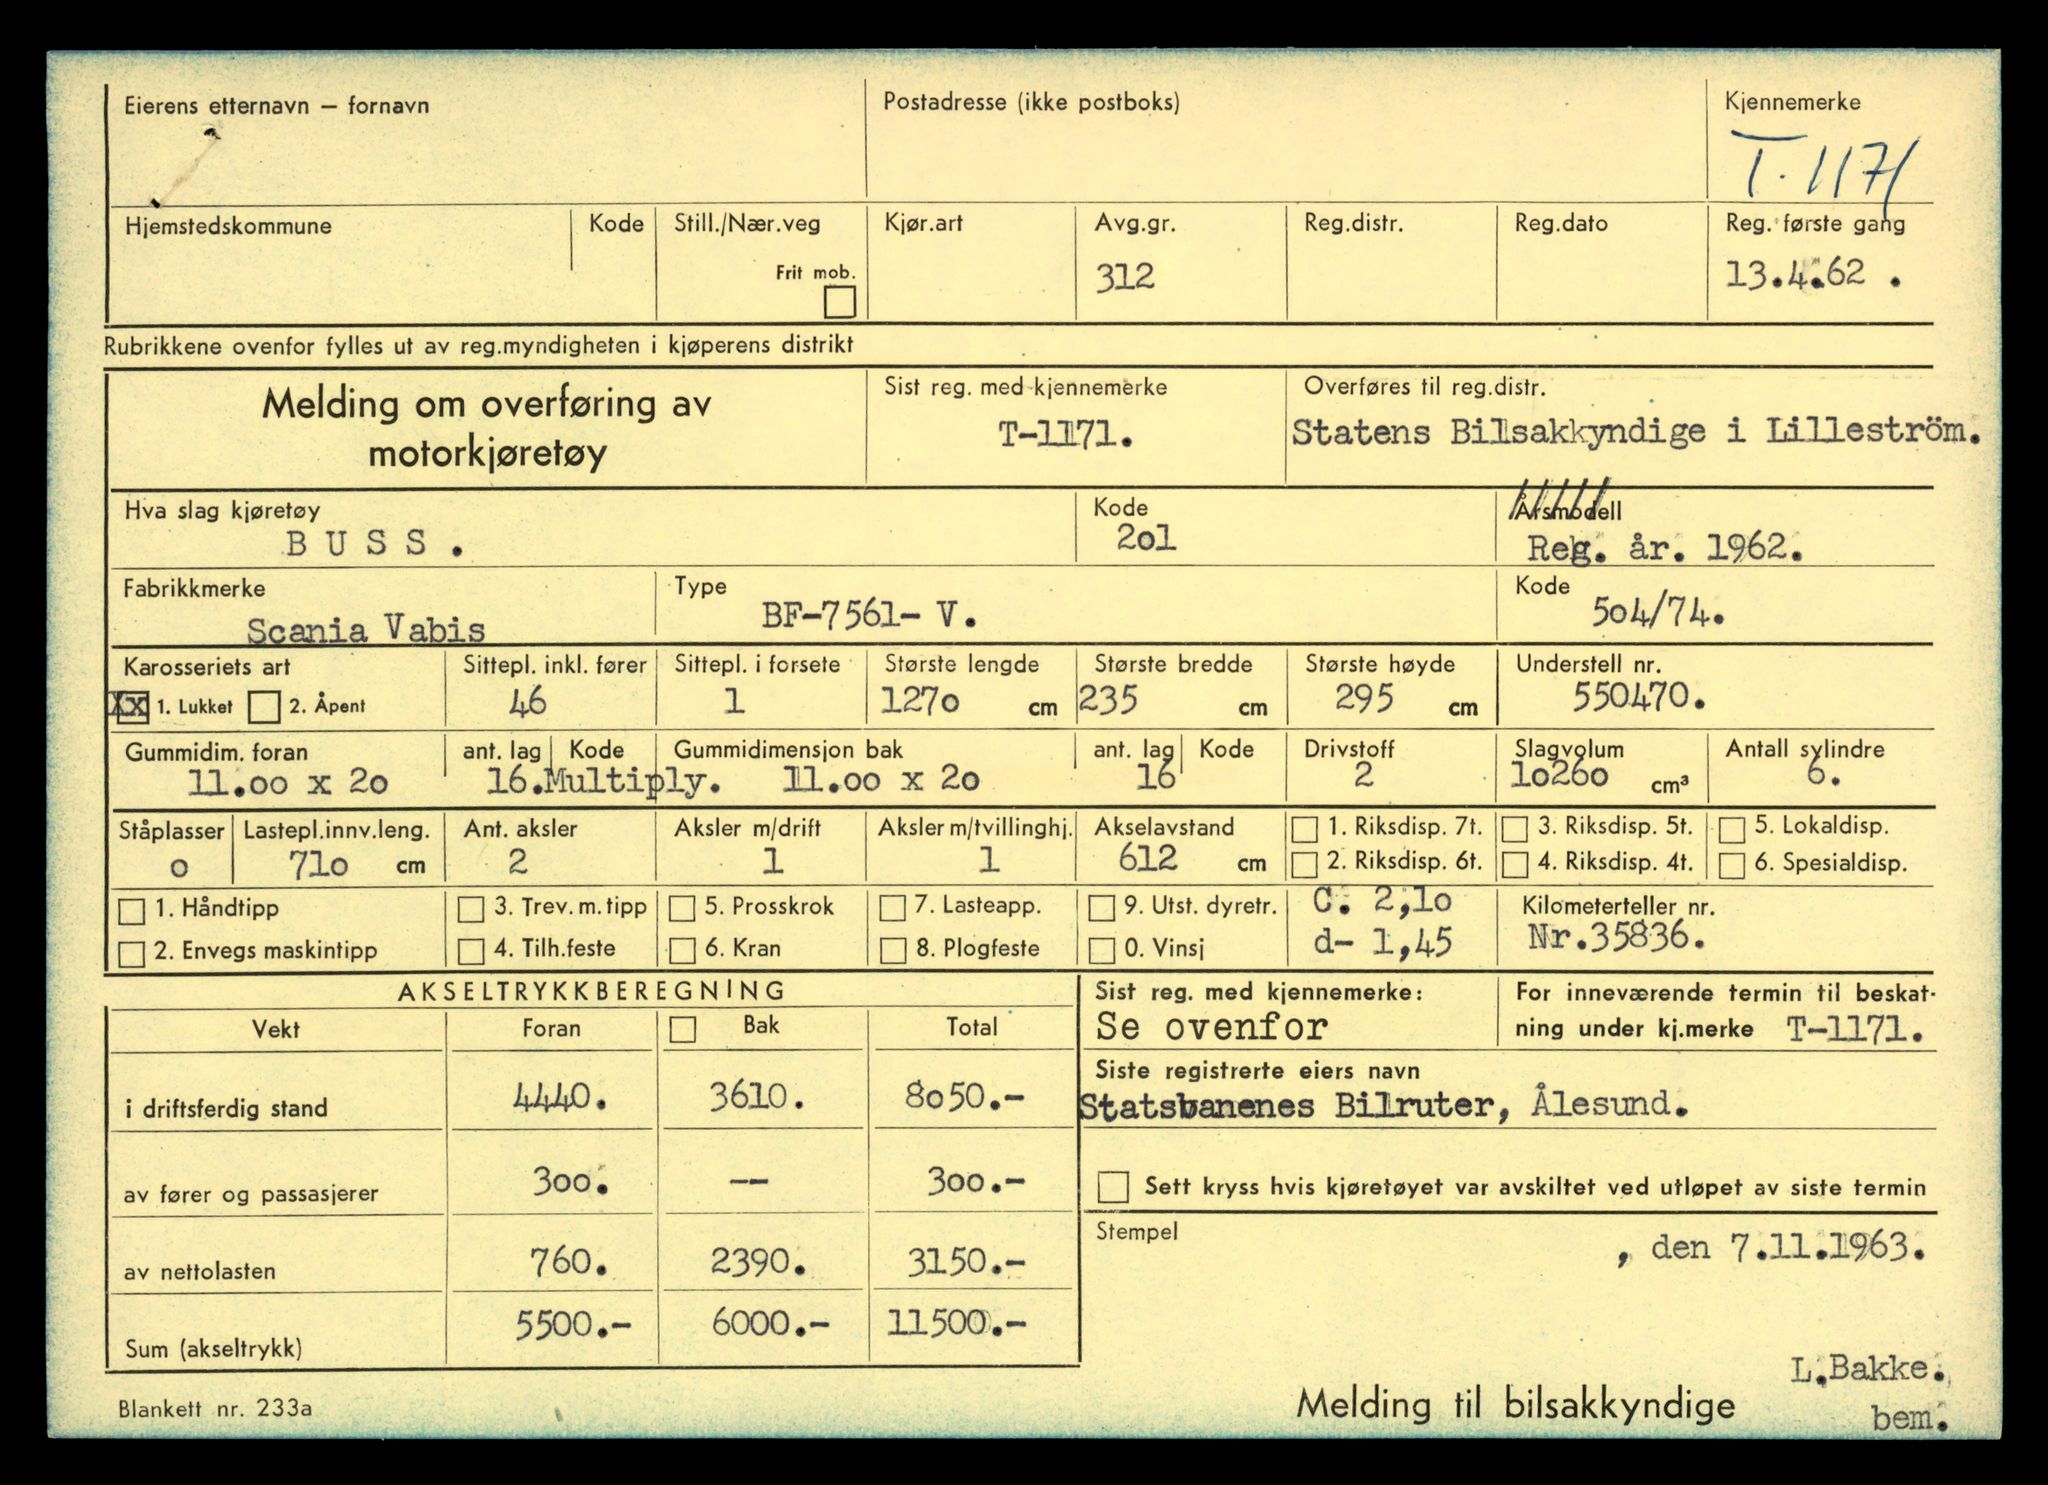 Eierens etternavn – fornavn
Postadresse (ikke postboks)
Kjennemerke
T. 1171
Hjemstedskommune
Kode
Still./Nær.veg
Frit mob.
Kjør.art
Avg.gr.
312
Reg.distr.
Reg.dato
Reg. første gang
13.4.62 .
Rubrikkene ovenfor fylles ut av reg.myndigheten i kjøperens distrikt
Melding om overføring av
motorkjøretøy
Sist reg. med kjennemerke
T-1171.
Overføres til reg.distr.
Statens Bilsakkyndige i Lilleström.
Hva slag kjøretøy
B U S S .
Kode
2o1
Årsmodell
Reg. år. 1962.
Fabrikkmerke
Scania Vabis
Type
BF-7561- V.
Kode
5o4/74.
Karosseriets art
Xx 1. Lukket 2. Åpent
Sittepl. inkl. fører
46
Sittepl. i forsete
1
Største lengde
127o cm
Største bredde
235 cm
Største høyde
295 cm
Understell nr.
550470.
Gummidim. foran
11.oo x 2o
ant. lag Kode
16.Multiply.
Gummidimensjon bak
11.oo x 2o
ant. lag Kode
16
Drivstoff
2
Slagvolum
1o26o cm³
Antall sylindre
6.
Ståplasser
o
Lastepl.innv.leng.
71o cm
Ant. aksler
2
Aksler m/drift
1
Aksler m/tvillinghj.
1
Akselavstand
612 cm
1. Riksdisp. 7t. 3. Riksdisp. 5t. 5. Lokaldisp.
2. Riksdisp. 6t. 4. Riksdisp. 4t. 6. Spesialdisp.
1. Håndtipp 3. Trev. m. tipp 5. Prosskrok 7. Lasteapp. 9. Utst. dyretr.
2. Envegs maskintipp 4. Tilh.feste 6. Kran 8. Plogfeste 0. Vinsj
C. 2,1o
d- 1,45
Kilometerteller nr.
Nr.35836.
AKSELTRYKKBEREGNING
Vekt Foran Bak Total
i driftsferdig stand 4440. 3610. 8o50.-
av fører og passasjerer 3oo. -- 3oo.-
av nettolasten 760. 2390. 3150.-
Sum (akseltrykk) 5500.- 6000.- 11500.-
Sist reg. med kjennemerke:
Se ovenfor
For inneværende termin til beskat-
ning under kj.merke T-1171.
Siste registrerte eiers navn
Statsbanenes Bilruter, Ålesund.
Sett kryss hvis kjøretøyet var avskiltet ved utløpet av siste termin
Stempel
, den 7.11.1963.
L.Bakke.
bem.
Blankett nr. 233a
Melding til bilsakkyndige